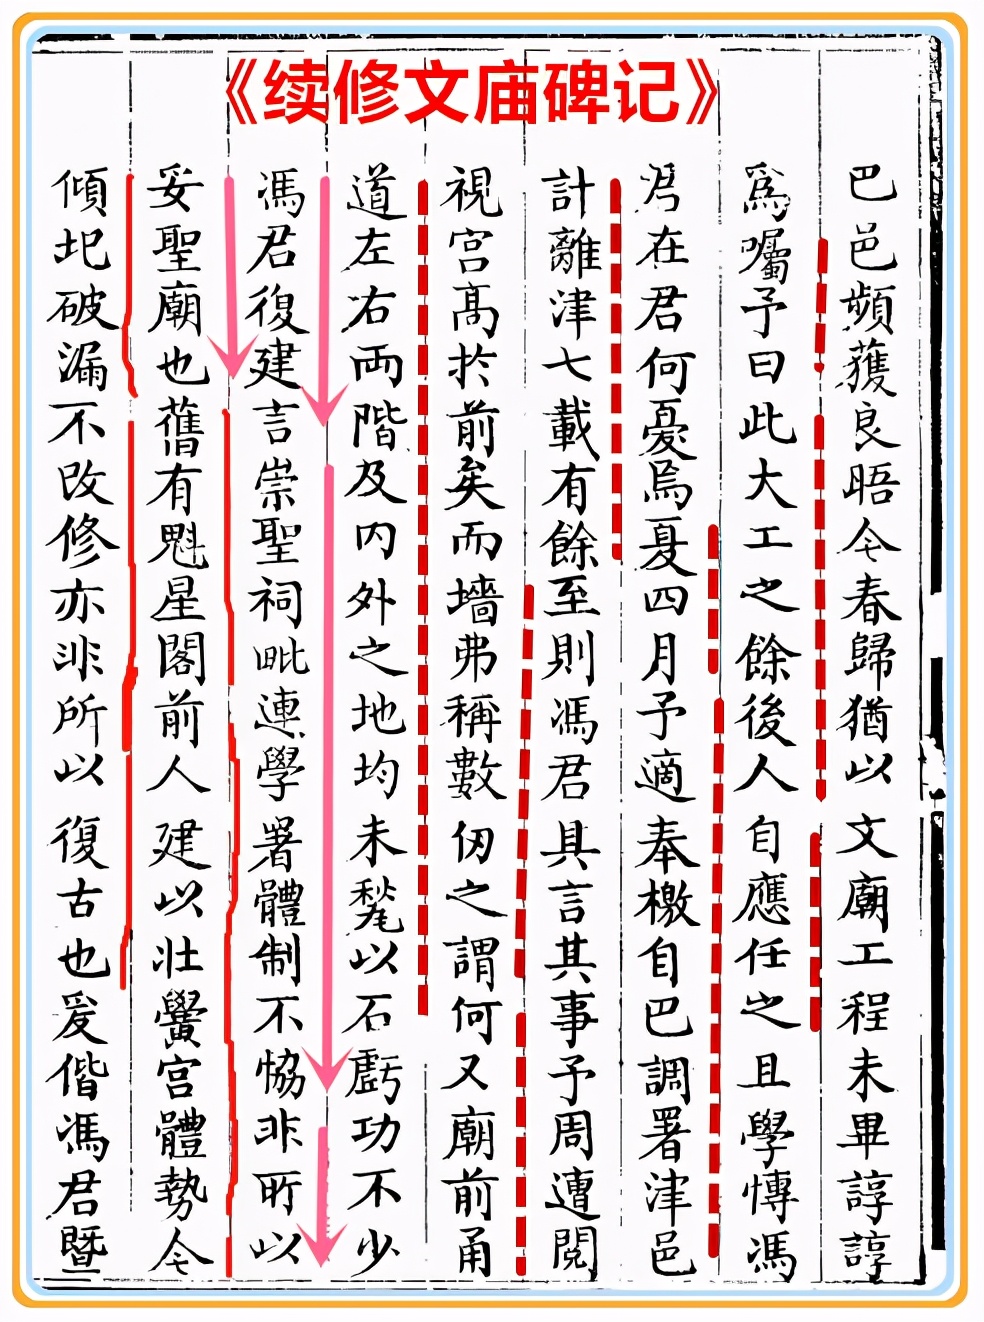 《续修文庙碑记》
巴邑頻獲良晤今春歸猶以文廟工程未畢諄諄
爲囑予曰此大工之餘後人自應任之且學博馮
君在君何憂焉夏四月予適奉檄自巴調署津邑
計離津七載有餘至則馮君具言其事予周遭閱
視宫高於前矣而墻弗稱數仞之謂何又廟前甬
道左右両階及内外之地均未甃以石虧功不少
馮君復建言崇聖祠毗連學署體制不恊非所以
妥聖廟也舊有魁星閣前人建以壯黌宫體勢今
傾圯破漏不改修亦非所以復古也爰偕馮君暨